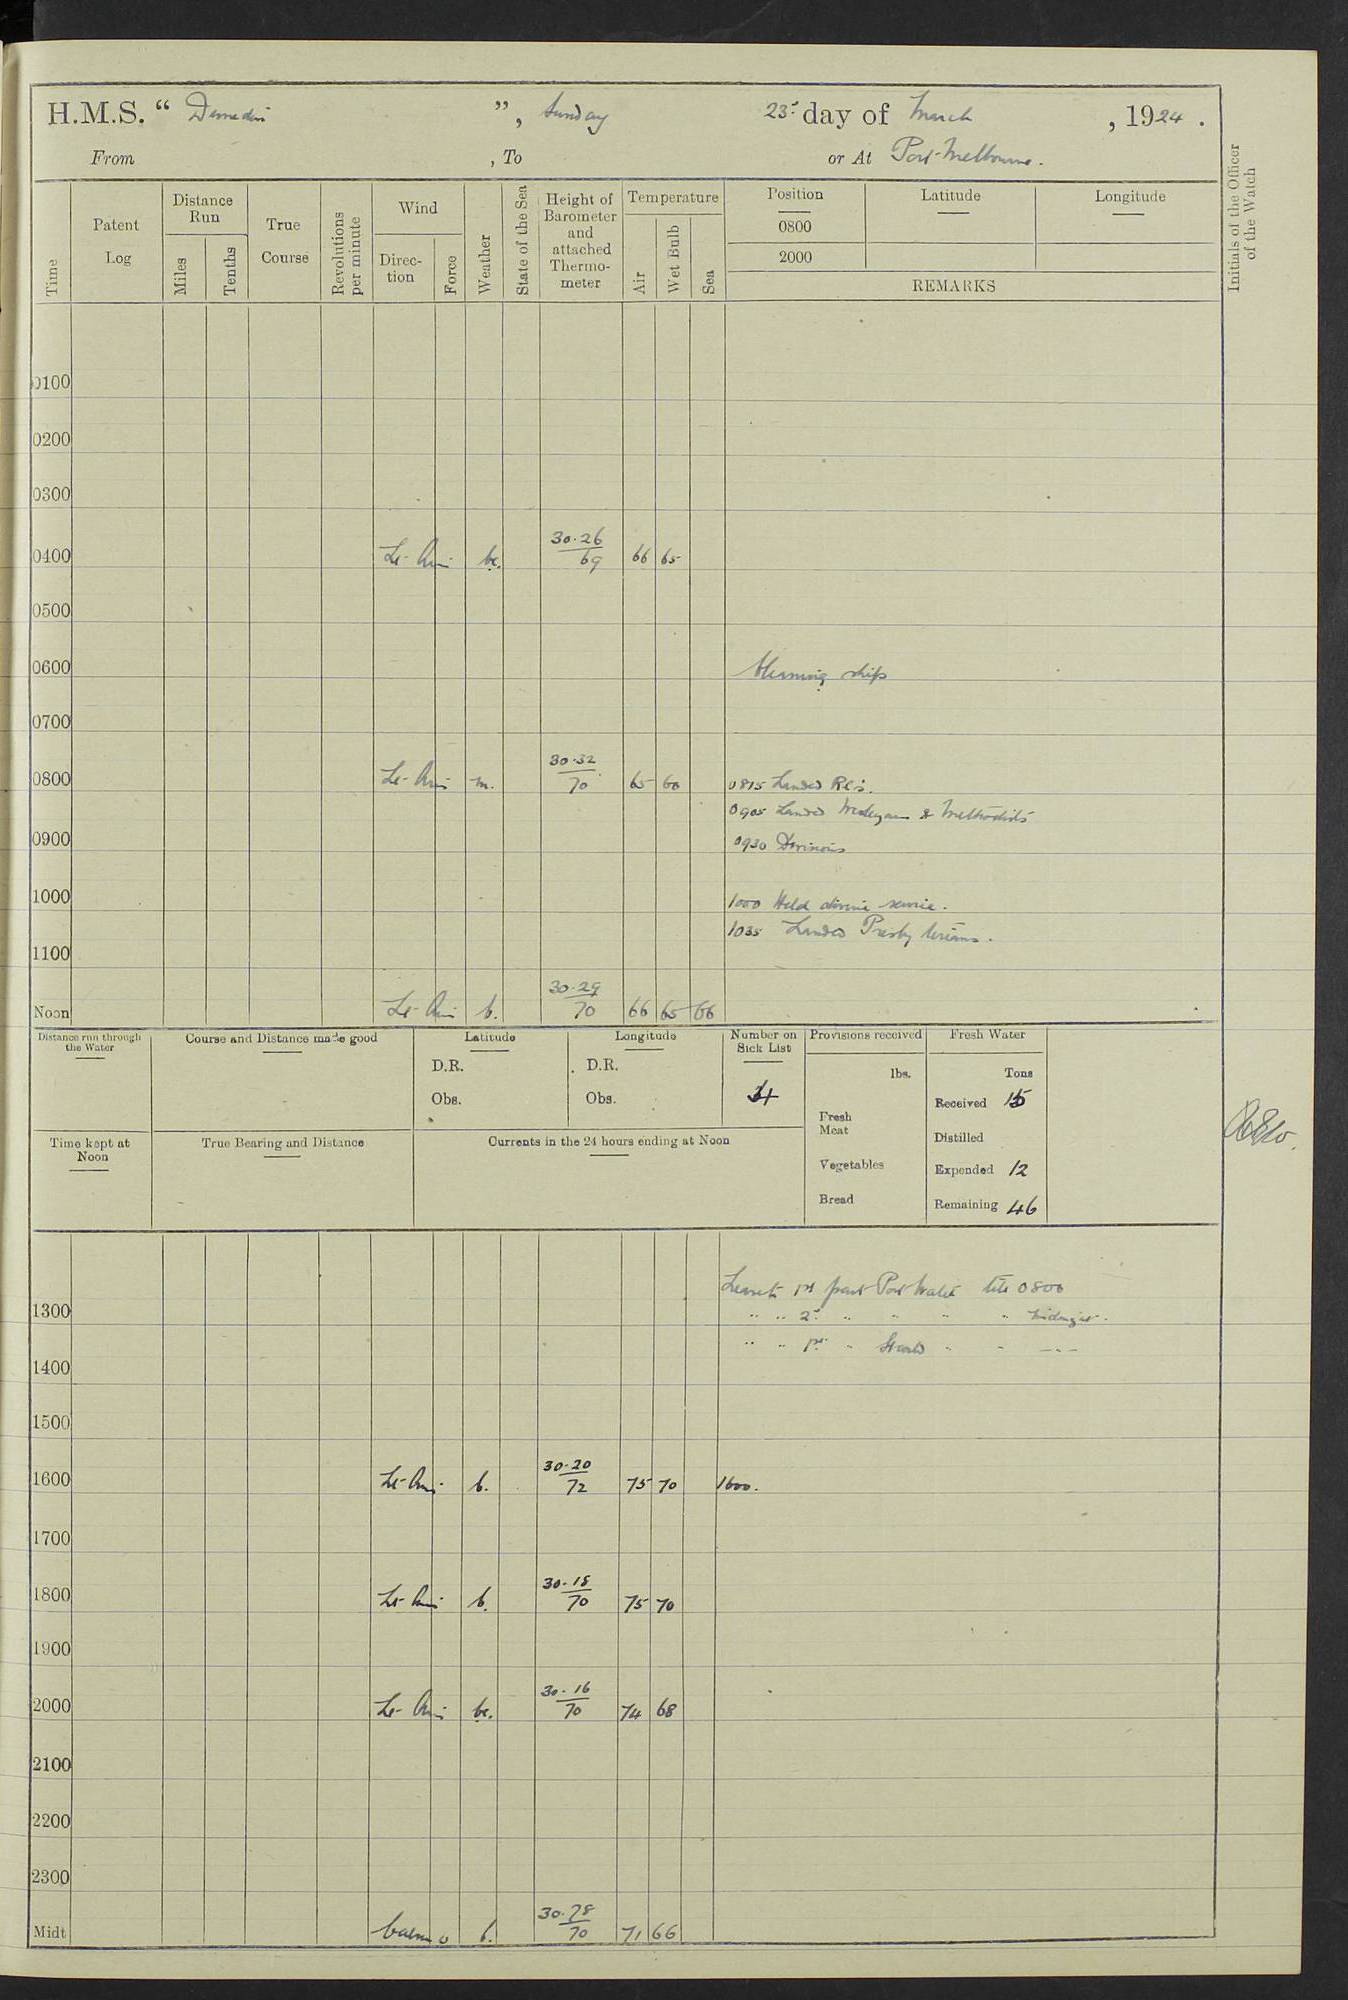 H.M.S. “ Dunedin ”, Sunday 23rd day of March, 1924.
From , To or At Port Melbourne.
Time
Patent Log
Distance Run
Miles
Tenths
True Course
Revolutions per minute
Wind
Direction
Force
Weather
State of the Sea
Height of Barometer and attached Thermometer
Temperature
Air
Wet Bulb
Sea
Position
Latitude
Longitude
0800
2000
REMARKS
Initials of the Officer of the Watch
0100
0200
0300
0400 Lt Airs bc. 30.26/69 66 65
0500
0600 ship
0700
0800 Lt Airs m. 30.32/70 65 60 0815 Landed RCs.
0905 Landed Wesleyans & Methodists
0900 0930 Divisions
1000 1000 Held divine service.
1035 Landed Presbyterians.
1100
Noon Lt Airs b. 30.29/70 66 65 66
Distance run through the Water
Course and Distance made good
Latitude
D.R.
Obs.
Longitude
D.R.
Obs.
Number on Sick List
Provisions received
lbs.
Fresh Meat
Vegetables
Bread
Fresh Water
Tons
Received 15
Distilled
Expended 12
Remaining 46
Time kept at Noon
True Bearing and Distance
Currents in the 24 hours ending at Noon
Leave to 1st part Port Watch till 0800
1300 " " 2nd " " " " Midnight.
" " 1st " Starbd " " ---
1400
1500
1600 Lt Airs b. 30.20/72 75 70 1600.
1700
1800 Lt Airs b. 30.18/70 75 70
1900
2000 Lt Airs bc. 30.16/70 74 68
2100
2200
2300
Midt Calm 0 b. 30.28/70 71 66